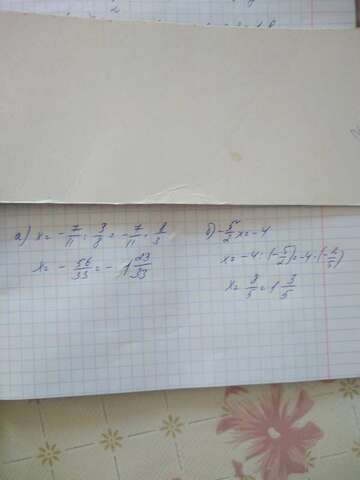 а) x = -7/11 : 3/8 = -7/11 · 8/3
x = -56/33 = -1 23/33
б) -5/2 x = -4
x = -4 : (-5/2) = -4 · (-2/5)
x = 8/5 = 1 3/5